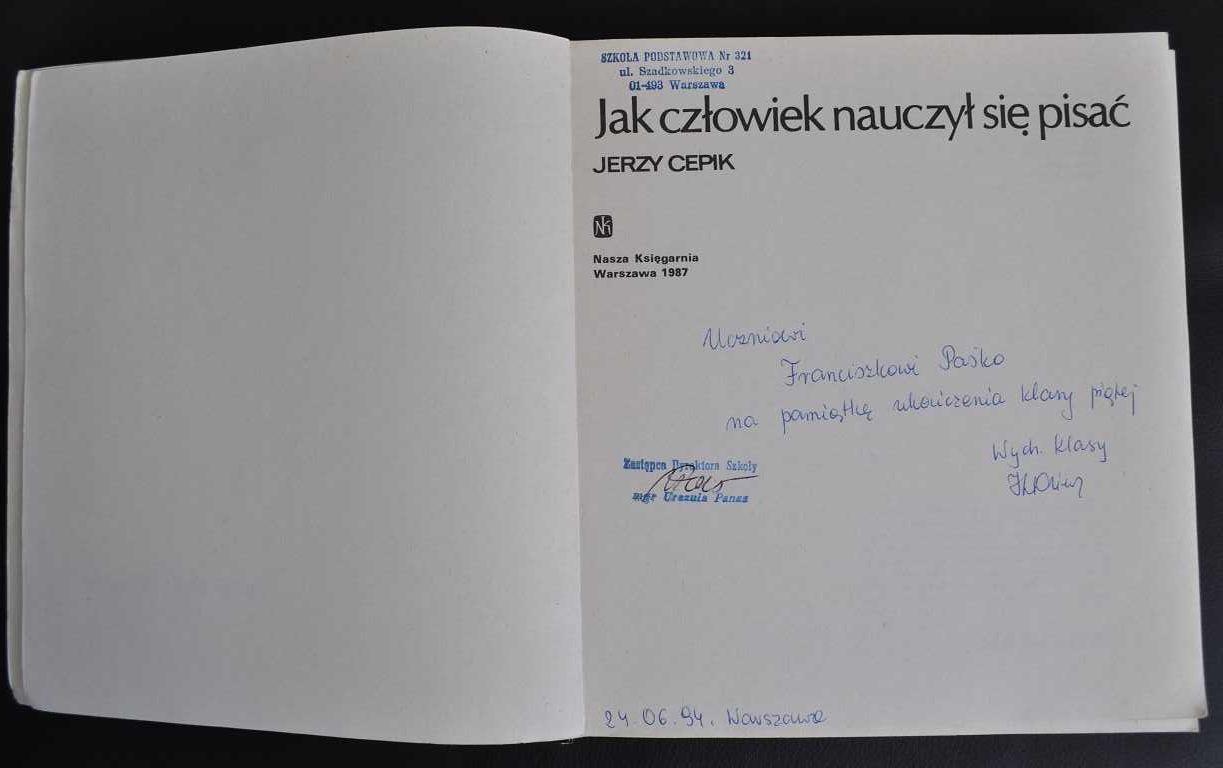 SZKOŁA PODSTAWOWA Nr 321
ul. Szadkowskiego 3
01-493 Warszawa
Jak człowiek nauczył się pisać
JERZY CEPIK
NK
Nasza Księgarnia
Warszawa 1987
Uczniowi
Franciszkowi Paśko
na pamiątkę ukończenia klasy piątej
Wych. klasy
Zastępca Dyrektora Szkoły
mgr Urszula Panas
24.06.94. Warszawa